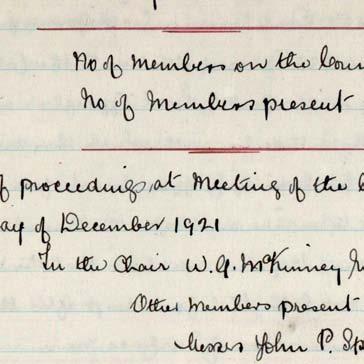 No of Members on the Coun
No of Members present
f proceedings at Meeting of the
ay of December 1921
In the Chair W. G. McKinney
Other Members present
Messrs John P. Sp